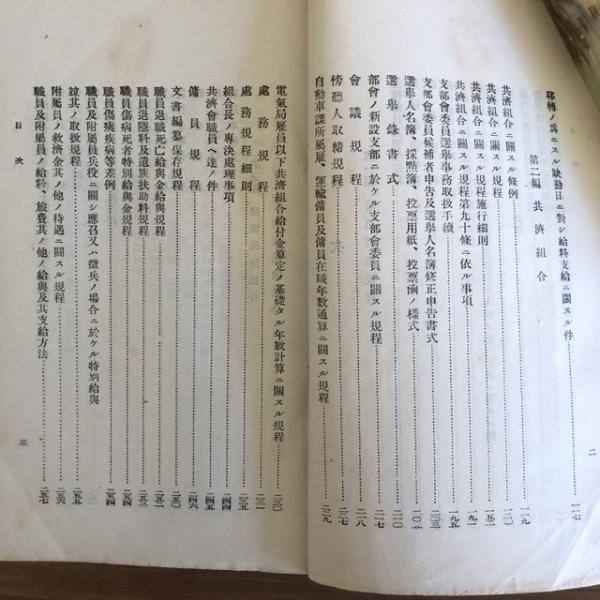 移轉ノ爲ニスル缺勤日ニ對シ給料支給ニ關スル件 二一七
第二編 共濟組合
共濟組合ニ關スル條例 二一九
共濟組合ニ關スル規程
共濟組合ニ關スル規程施行細則
共濟組合ニ關スル規程第九十條ニ依ル事項
支部會委員選擧事務取扱手續
支部會委員候補者申告及選擧人名簿修正申告書式
選擧人名簿、採點簿、投票用紙、投票函ノ樣式
選擧錄書式 二一〇
部會ノ新設支部ニ於ケル支部會委員ニ關スル規程 二一七
會議規程 二一八
傍聽人取締規程 二二七
自動車課所屬雇、運輸傭員及傭員在職年數通算ニ關スル規程 二二九
電氣局雇員以下共濟組合給付金算定ノ基礎タル年數計算ニ關スル規程 二三〇
處務規程 二三一
處務規程細則 二三五
組合長ノ專決處理事項 二四四
共濟會職員ヘ達ノ件 二四五
傭員規程 二四六
文書編纂保存規程 二五〇
職員退職死亡給與金給與規程 二五一
職員退隱料及遺族扶助料規程 二五三
職員傷病死者特別給與金規程 二五四
職員傷病疾病等差例 二五四
職員及附屬員兵役ニ關シ應召又ハ徵兵ノ場合ニ於ケル特別給與
竝其ノ取扱規程 二五五
附屬員ノ救濟金其ノ他ノ待遇ニ關スル規程 二五六
職員及附屬員ノ給料、旅費其ノ他ノ給與及其支給方法 二五七
目次
二
三